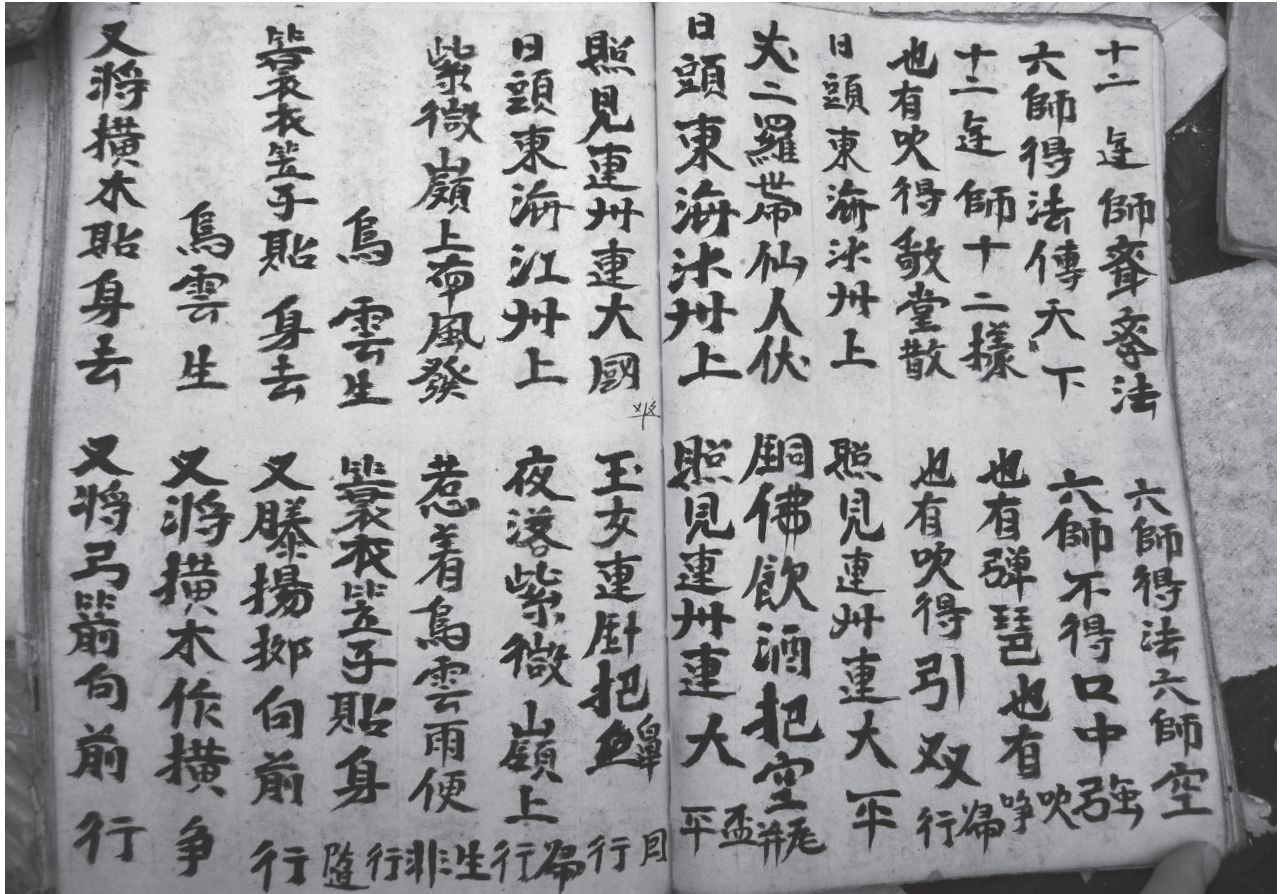 十二 師 法 六師得法六師空
六師得法傳天下 六師不得口中強
十二 師十二樣 也有弹琶也有吹
也有吹得敬堂散 也有吹得引双行
日頭東海氺州上 照見連州連大平
二羅 仙人伏 佛飲酒把空
日頭東海氺州上 照見連州連大平
照見連州連大國 玉女連 把 行
日頭東海江州上 夜落紫微山嶺上行
紫微山嶺上布風發 惹着烏雲雨便生
烏雲生 簑衣笠子貼身行
簑衣笠子貼身去 又 揚 向前行
烏雲生 又將横木作横争
又將横木貼身去 又將弓箭向前行